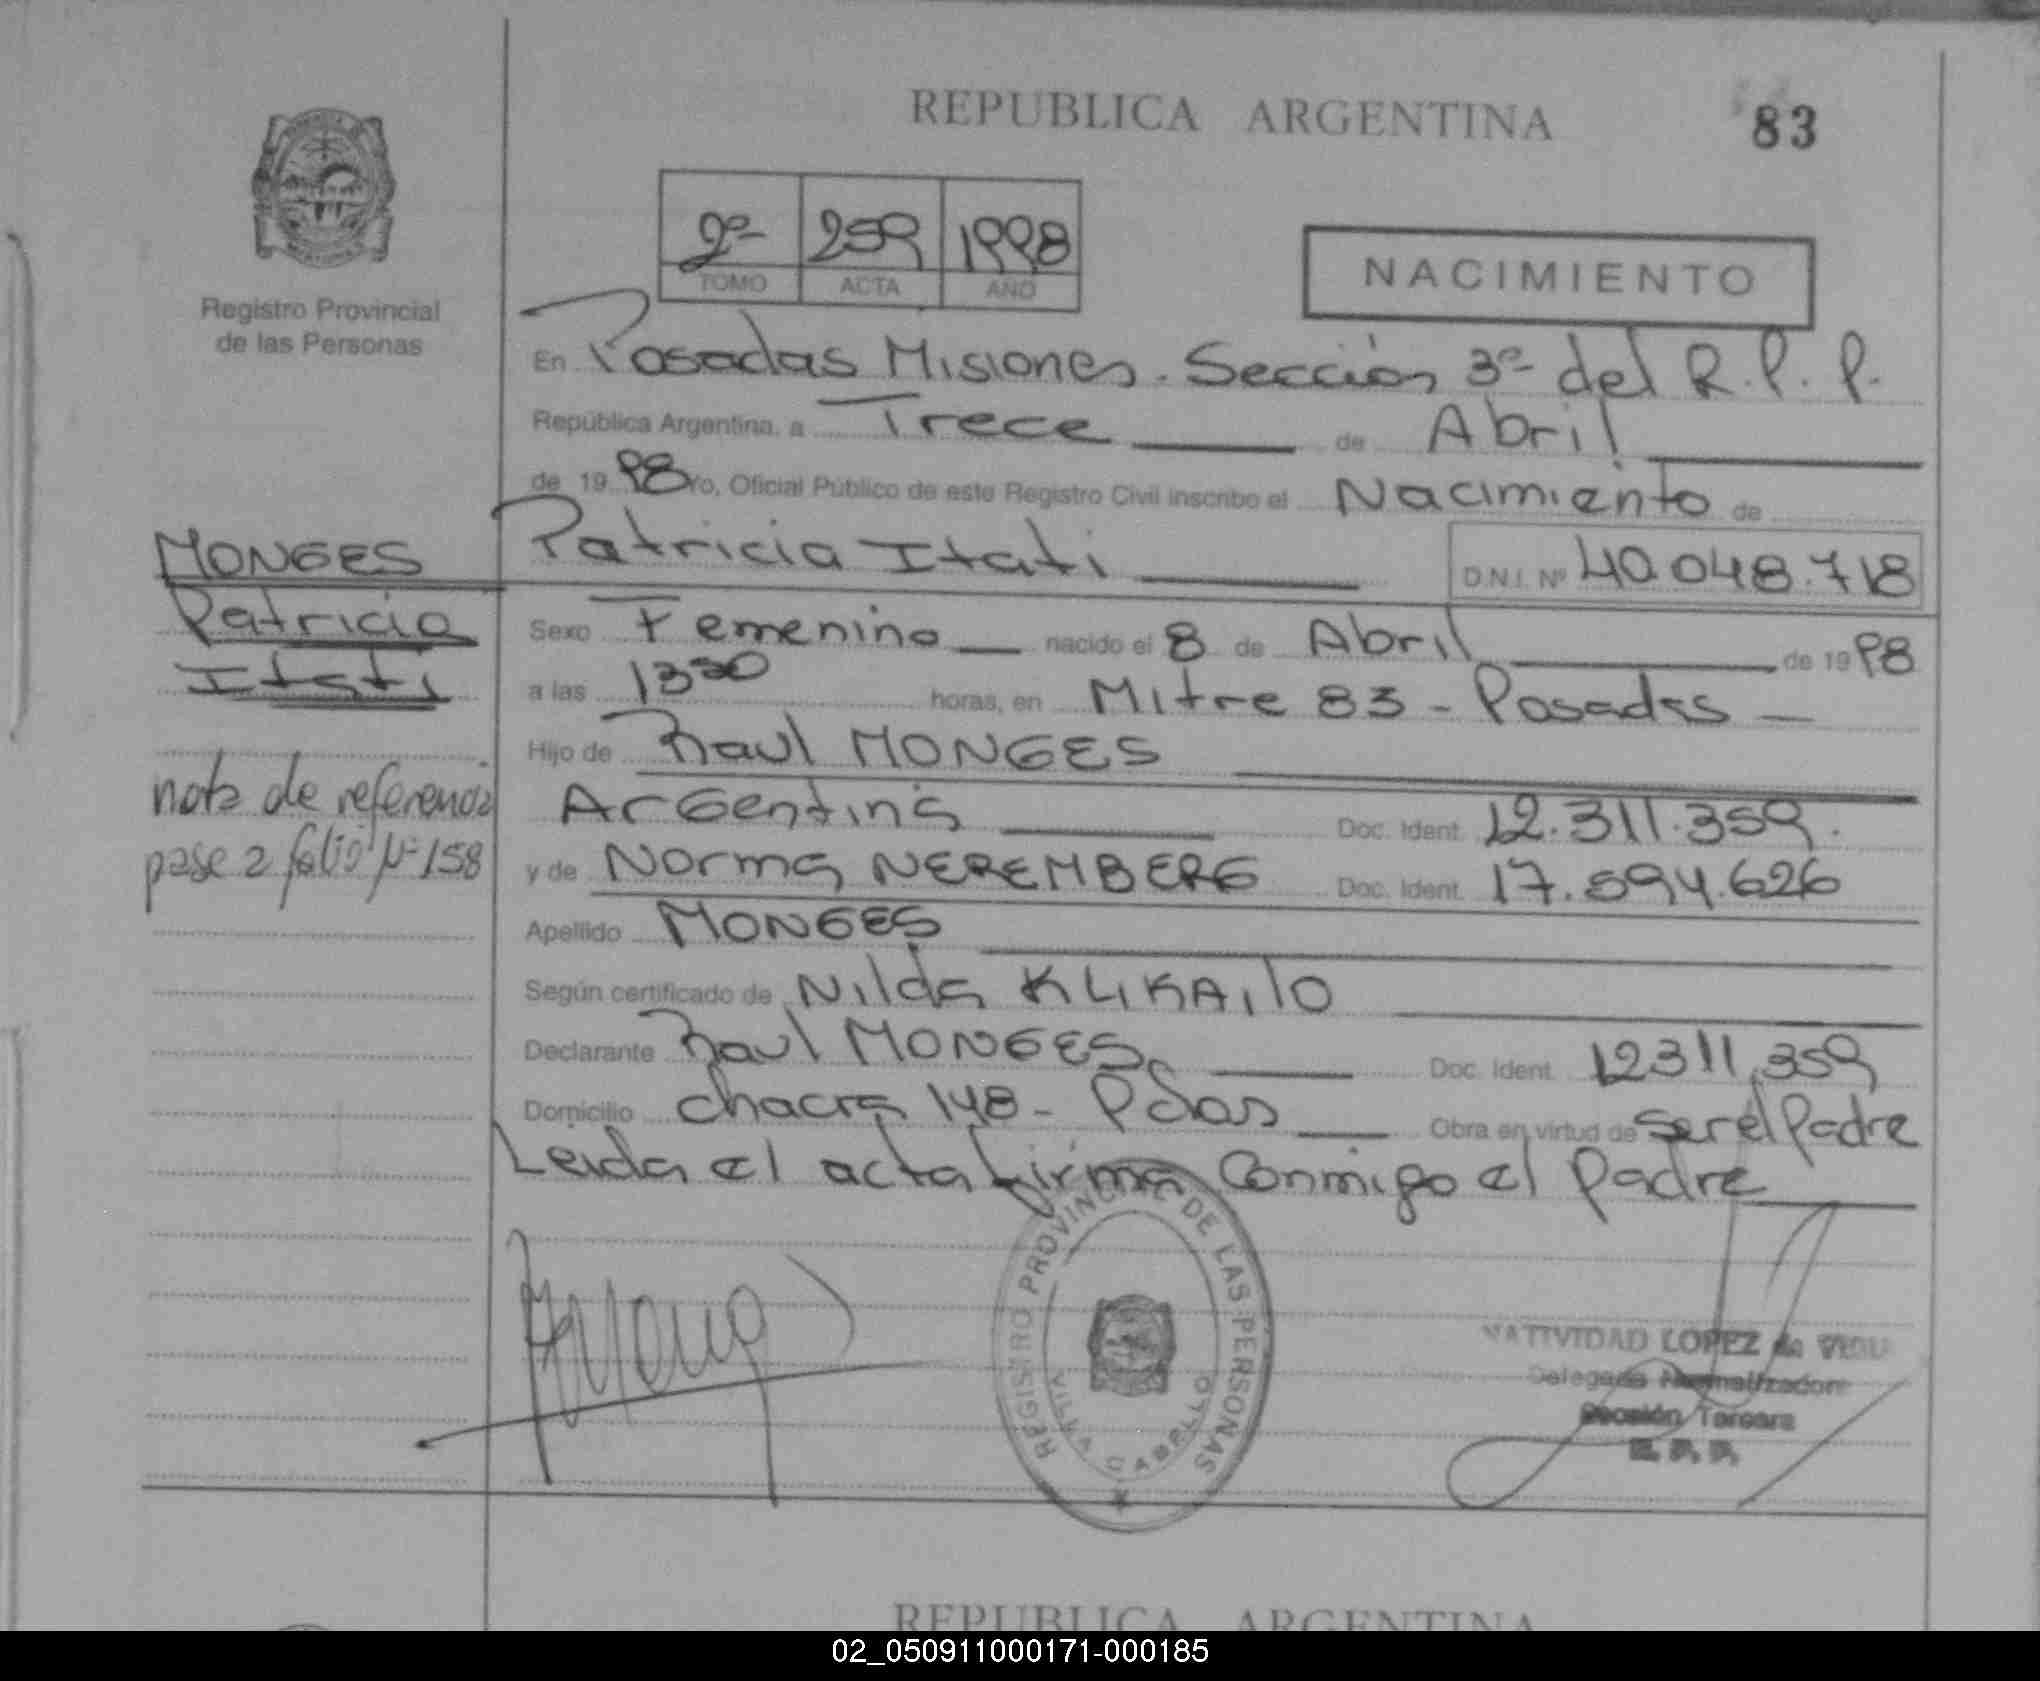 REPUBLICA ARGENTINA
83
2º 259 1998
TOMO ACTA AÑO
NACIMIENTO
Registro Provincial
de las Personas
En Posadas Misiones. Sección 3ª del R.P.P.
República Argentina, a Trece de Abril
de 1998 Yo, Oficial Público de este Registro Civil inscribo el Nacimiento de
Patricia Itati D.N.I. Nº 40.048.718
MONGES
Patricia
Itati
Sexo Femenino nacido el 8 de Abril de 1998
a las 13 30 horas, en Mitre 83 - Posadas
Hijo de Raul MONGES
Argentina Doc. Ident. 12.311.359.
nota de referencia
pase a folio Nº 158
y de Norma NEREMBERG Doc. Ident. 17.594.626
Apellido MONGES
Según certificado de Nilda
Declarante Raul MONGES Doc. Ident. 12311.359
Domicilio chacra 148 - Pdas Obra en virtud de ser el Padre
Leida el acta firma Conmigo el Padre
REGISTRO PROVINCIAL DE LAS PERSONAS
VILLA CABELLO
NATIVIDAD LOPEZ de
Delegada Normalizadora
Sección Tercera
R. P. P.
REPUBLICA ARGENTINA
02_050911000171-000185